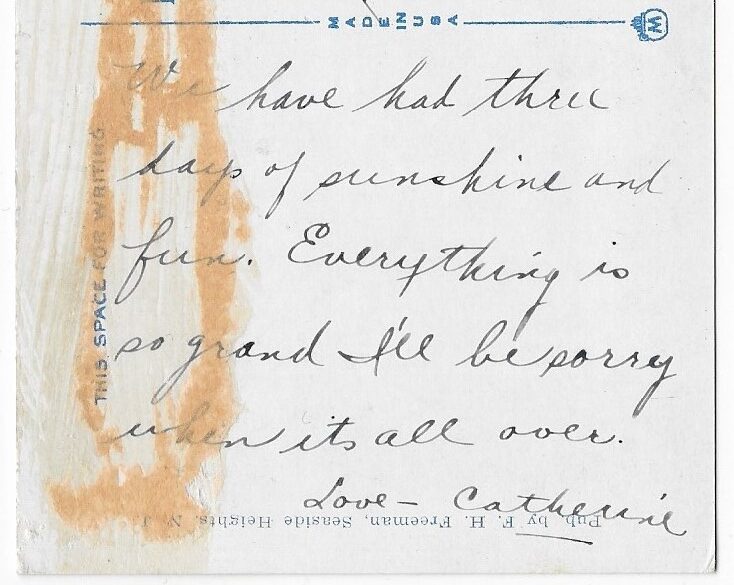 MADE IN USA
THIS SPACE FOR WRITING
We have had three
days of sunshine and
fun. Everything is
so grand I'll be sorry
when its all over.
Love - Catherine
Pub. by F. H. Freeman, Seaside Heights, N. J.